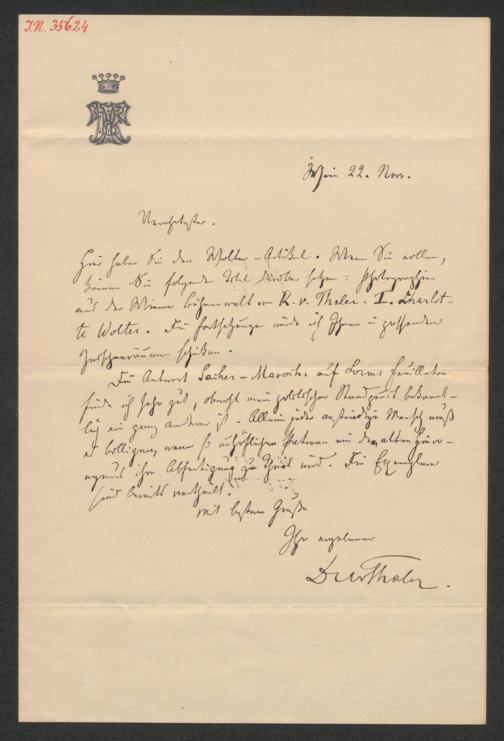 I.N. 35624
Wien 22. Nov.
Verehrtester.
Hier haben Sie den Wolter-Artikel. Wenn Sie wollen,
können Sie folgende Titel darüber setzen: Photographien
aus der Wiener Bühnenwelt von K. v. Thaler. I. Charlot-
te Wolter. Die Fortsetzungen werde ich Ihnen in passenden
Zwischenräumen schicken.
Die Antwort Sacher-Masochs auf Lorms Feuilleton
finde ich sehr gut, obwohl mein politischer Standpunkt bekannt-
lich ein ganz anderer ist. Allein jeder anständige Mensch muß
es billigen, wenn so Patronen wie dem alten
ihre Abfertigung zu Theil wird. Die Exemplare
sind bereits vertheilt.
Mit bestem Gruße
Ihr ergebener
Thaler.